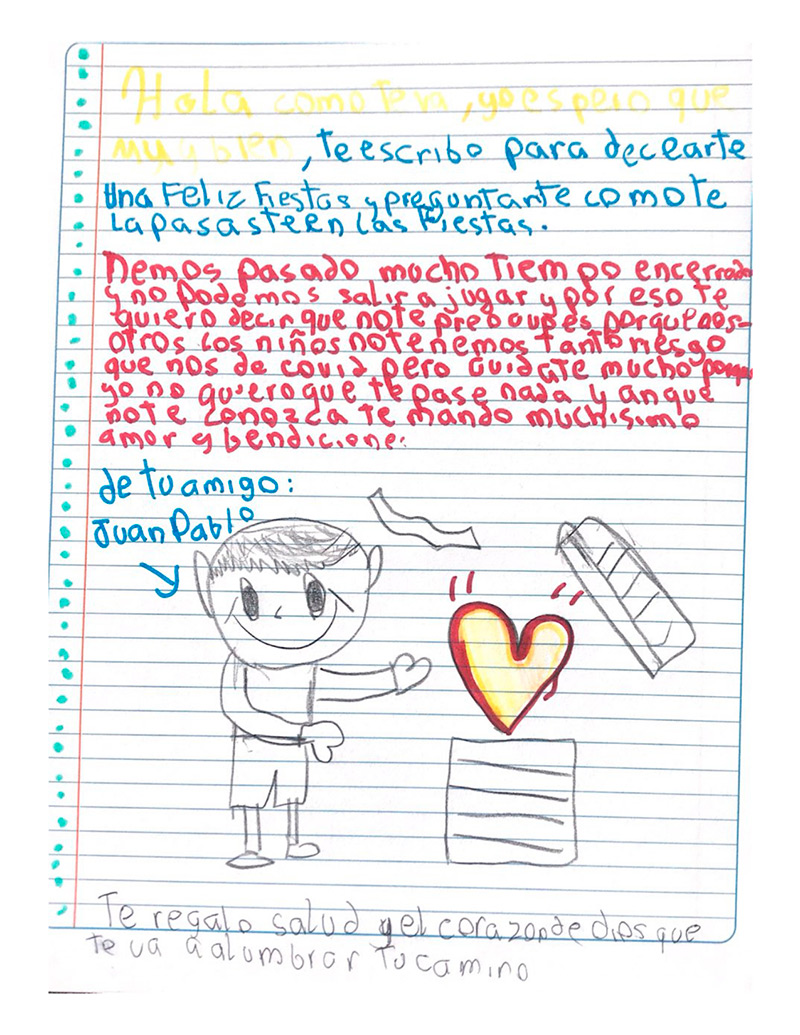 Hola como te va, yo espero que
muy bien, te escribo para decearte
una Feliz Fiestas y preguntante como te
la pasaste en las Fiestas.
Hemos pasado mucho Tiempo encerrado
y no podemos salir a jugar y por eso te
quiero decir que no te preocupes porque nos-
otros los niños no tenemos tanto riesgo
que nos de covid pero cuidate mucho porque
yo no quiero que te pase nada y anque
no te conozca te mando muchisimo
amor y bendicione.
de tu amigo:
Juan Pablo
Te regalo salud y el corazon de dios que
te va a alumbrar Tu camino